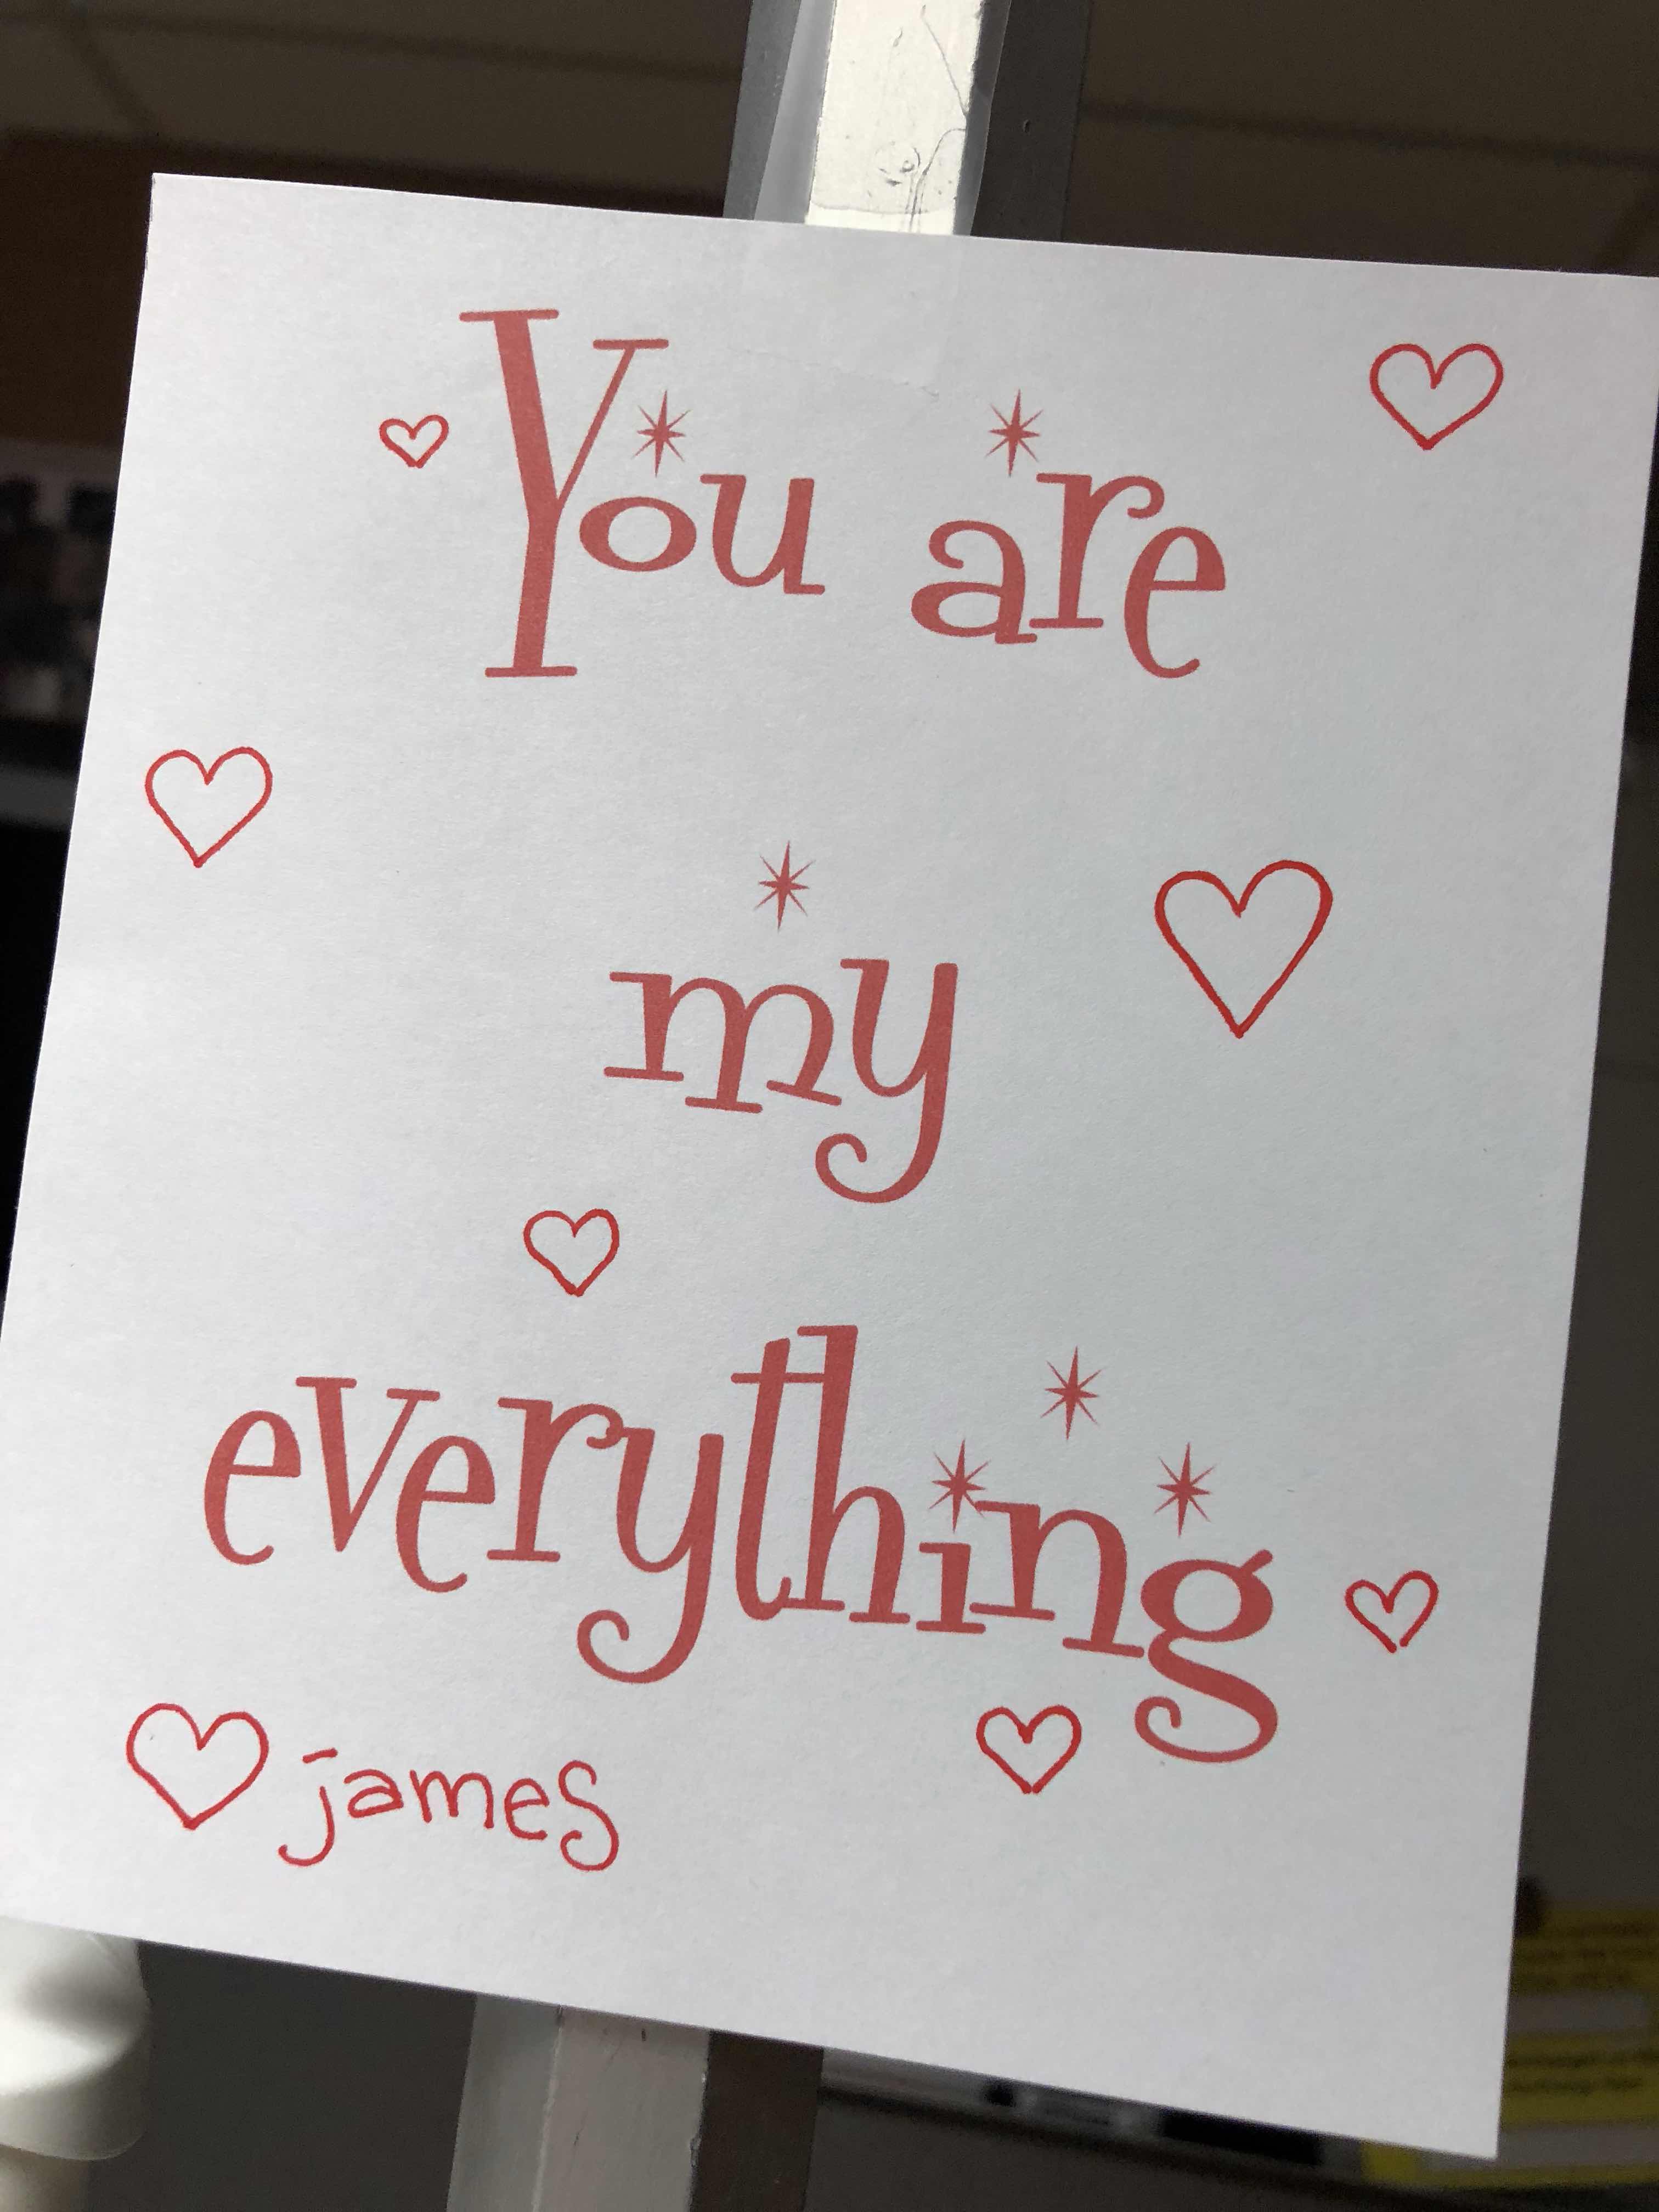 You are
my
everything
james